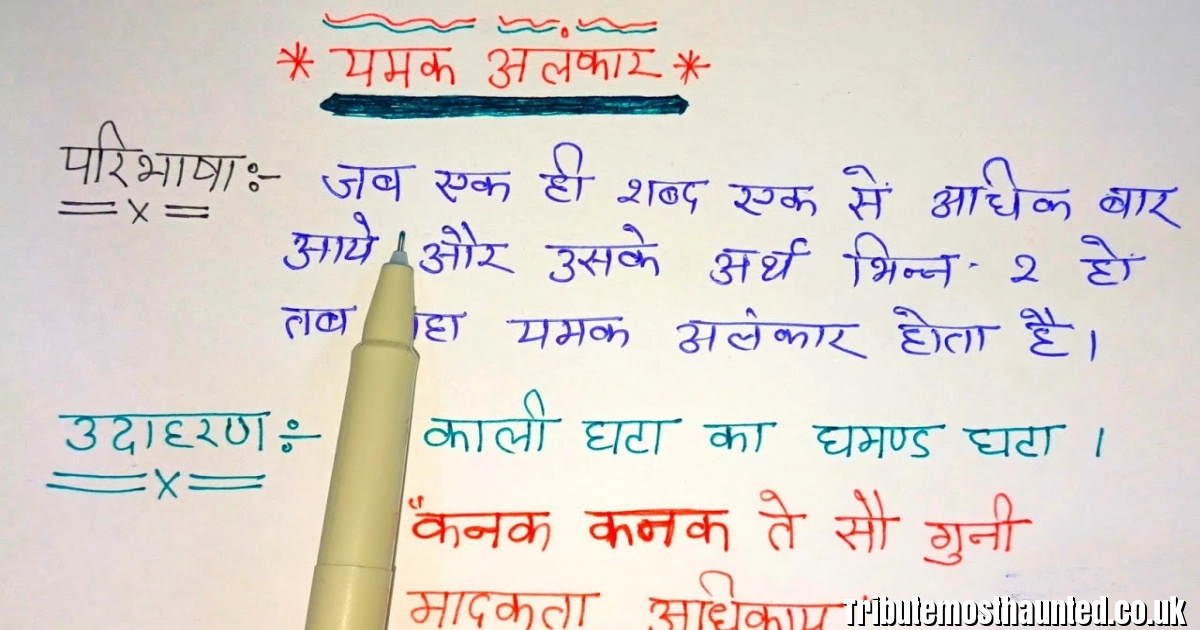 * यमक अलंकार *
परिभाषा :- जब एक ही शब्द एक से अधिक बार
आये और उसके अर्थ भिन्न - २ हो
तब यमक अलंकार होता है।
उदाहरण :- काली घटा का घमण्ड घटा ।
"कनक कनक ते सौ गुनी
मादकता अधिकाय
Tributemosthaunted.co.uk